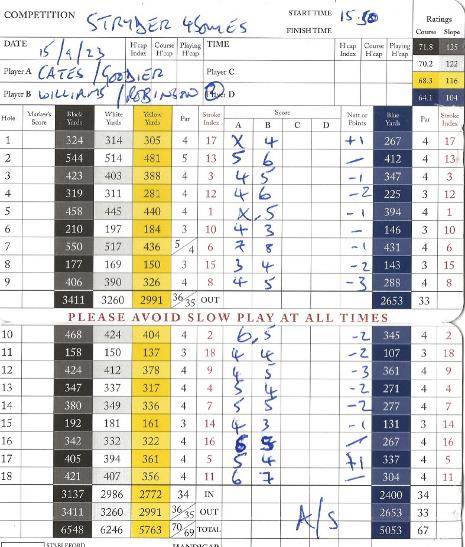 COMPETITION STRYDER 4SOMES START TIME 15.50 Ratings
FINISH TIME Course Slope
DATE 15/9/23 H'cap Index Course H'cap Playing H'cap TIME H'cap Index Course H'cap Playing H'cap 71.8 125
70.2 122
Player A CATES / GOODIER Player C 68.3 116
Player B WILLIAMS / ROBINSON D 64.1 104
Hole Marker's Score Black Yards White Yards Yellow Yards Par Stroke Index Score A B C D Nett or Points Blue Yards Par Stroke Index
1 324 314 305 4 17 X 4 +1 267 4 17
2 544 514 481 5 13 5 6 – 412 4 13
3 423 403 388 4 3 4 5 -1 347 4 3
4 319 311 281 4 12 4 6 -2 225 3 12
5 458 445 440 4 1 X 5 -1 394 4 1
6 210 197 184 3 10 4 3 – 146 3 10
7 550 517 436 5/4 6 7 8 -1 431 4 6
8 177 169 150 3 15 3 4 -2 143 3 15
9 406 390 326 4 8 4 5 -3 288 4 8
3411 3260 2991 36/35 OUT 2653 33
PLEASE AVOID SLOW PLAY AT ALL TIMES
10 468 424 404 4 2 6 5 -2 345 4 2
11 158 150 137 3 18 4 4 -2 107 3 18
12 424 412 378 4 9 4 5 -3 361 4 9
13 347 337 317 4 4 5 4 -2 271 4 4
14 380 349 336 4 7 5 5 -2 277 4 7
15 192 181 161 3 14 4 3 -1 131 3 14
16 342 332 322 4 16 6 5 – 267 4 16
17 405 394 361 4 5 5 4 +1 337 4 5
18 421 407 356 4 11 6 7 – 304 4 11
3137 2986 2772 34 IN 2400 34
3411 3260 2991 36/35 OUT A/S 2653 33
6548 6246 5763 70/69 TOTAL 5053 67
STABLEFORD HANDICAP